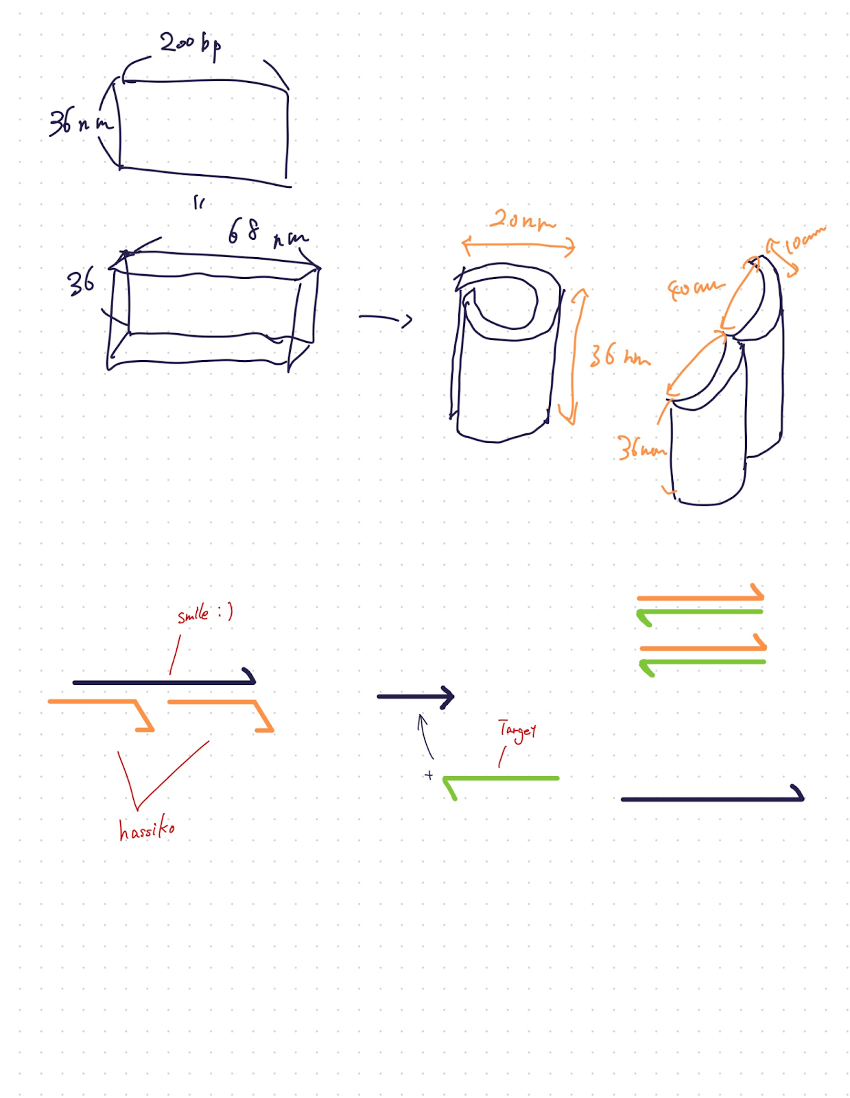 200bp
36nm
"
68 nm
36
20nm
36nm
10nm
40nm
36nm
smile :)
hassiko
+
Target